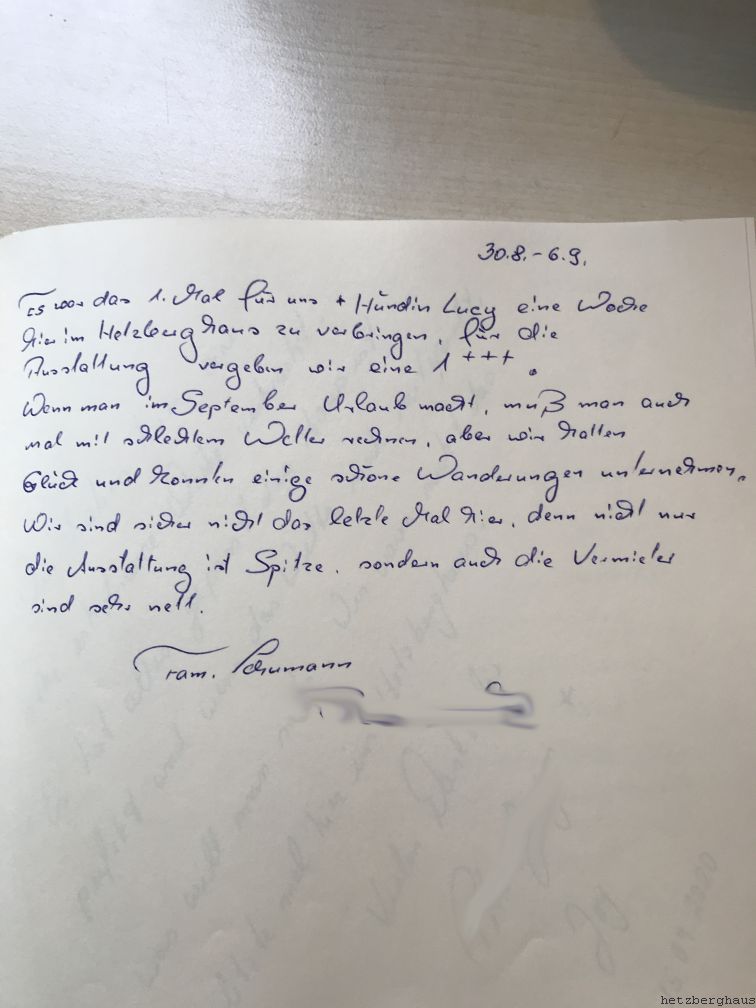 30.8.-6.9.
Es war das 1. Mal für uns + Hündin Lucy eine Woche
hier im Hetzberghaus zu verbringen, für die
Ausstattung vergeben wir eine 1+++.
Wenn man im September Urlaub macht, muß man auch
mal mit schlechtem Wetter rechnen, aber wir hatten
Glück und konnten einige schöne Wanderungen unternehmen.
Wir sind sicher nicht das letzte Mal hier, denn nicht nur
die Ausstattung ist Spitze, sondern auch die Vermieter
sind sehr nett.
Fam. Schumann
hetzberghaus